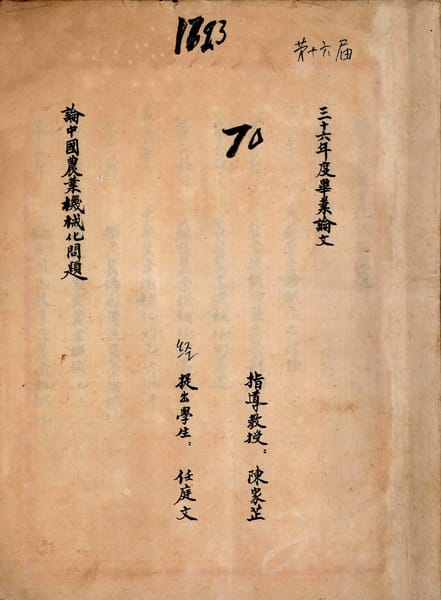 1693
第十六屆
70
三十六年度畢業論文
指導教授：陳家芷
經
提出學生：任庭文
論中國農業機械化問題